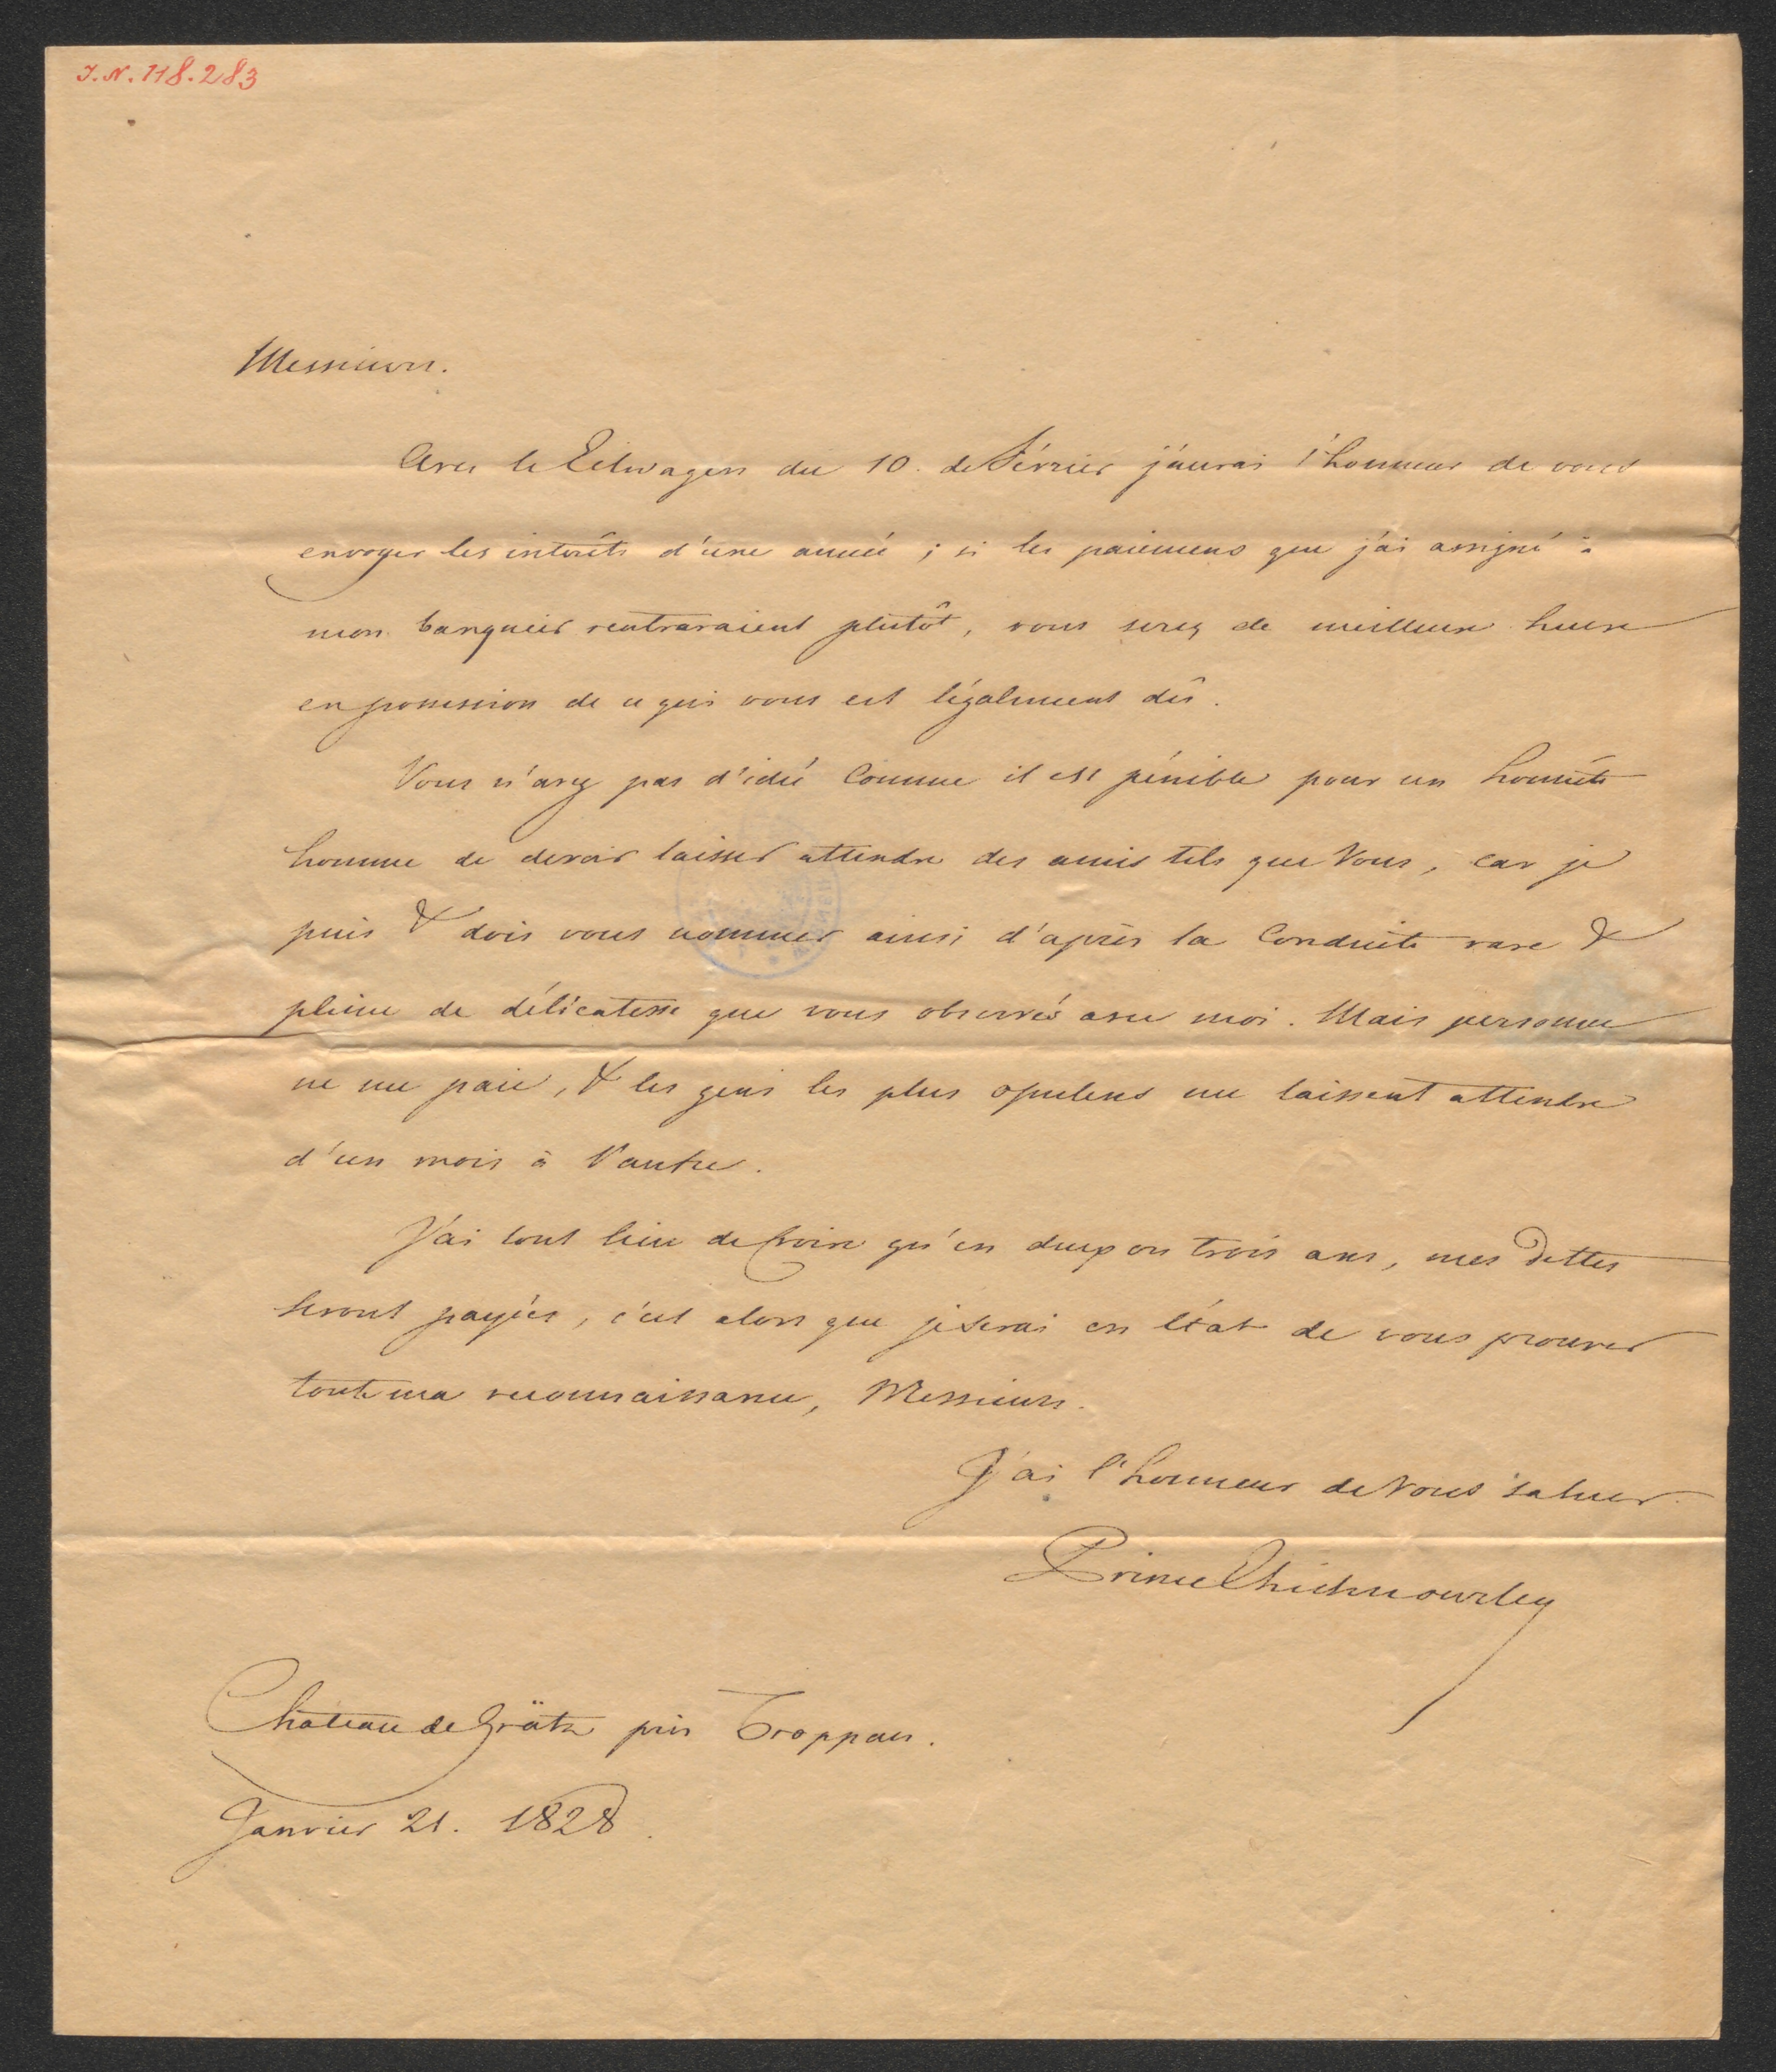 I.N. 118.283
Messieurs.
Avec le Eilwagen du 10. de Février j'aurai l'honneur de vous
envoyer les intérêts d'une année ; si les paiemens que j'ai assigné à
mon banquier rentreraient plutôt, vous serez de meilleure heure
en possession de ce qui vous est légalement dû.
Vous n'avez pas d'idée Comme il est pénible pour un honnête
homme de devoir laisser attendre des amis tels que Vous, car je
puis & dois vous nommer ainsi d'après la Conduite rare &
pleine de délicatesse que vous observés avec moi. Mais personne
ne me paie, & les gens les plus opulens me laissent attendre
d'un mois à l'autre.
J'ai tout lieu de Croire qu'en deux ou trois ans, mes Dettes
seront payées, c'est alors que je serai en état de vous prouver
toute ma reconnaissance, Messieurs.
J'ai l'honneur de Vous saluer.
Prince Lichnowsky
Château de Grätz près Troppau.
Janvier 21. 1828.